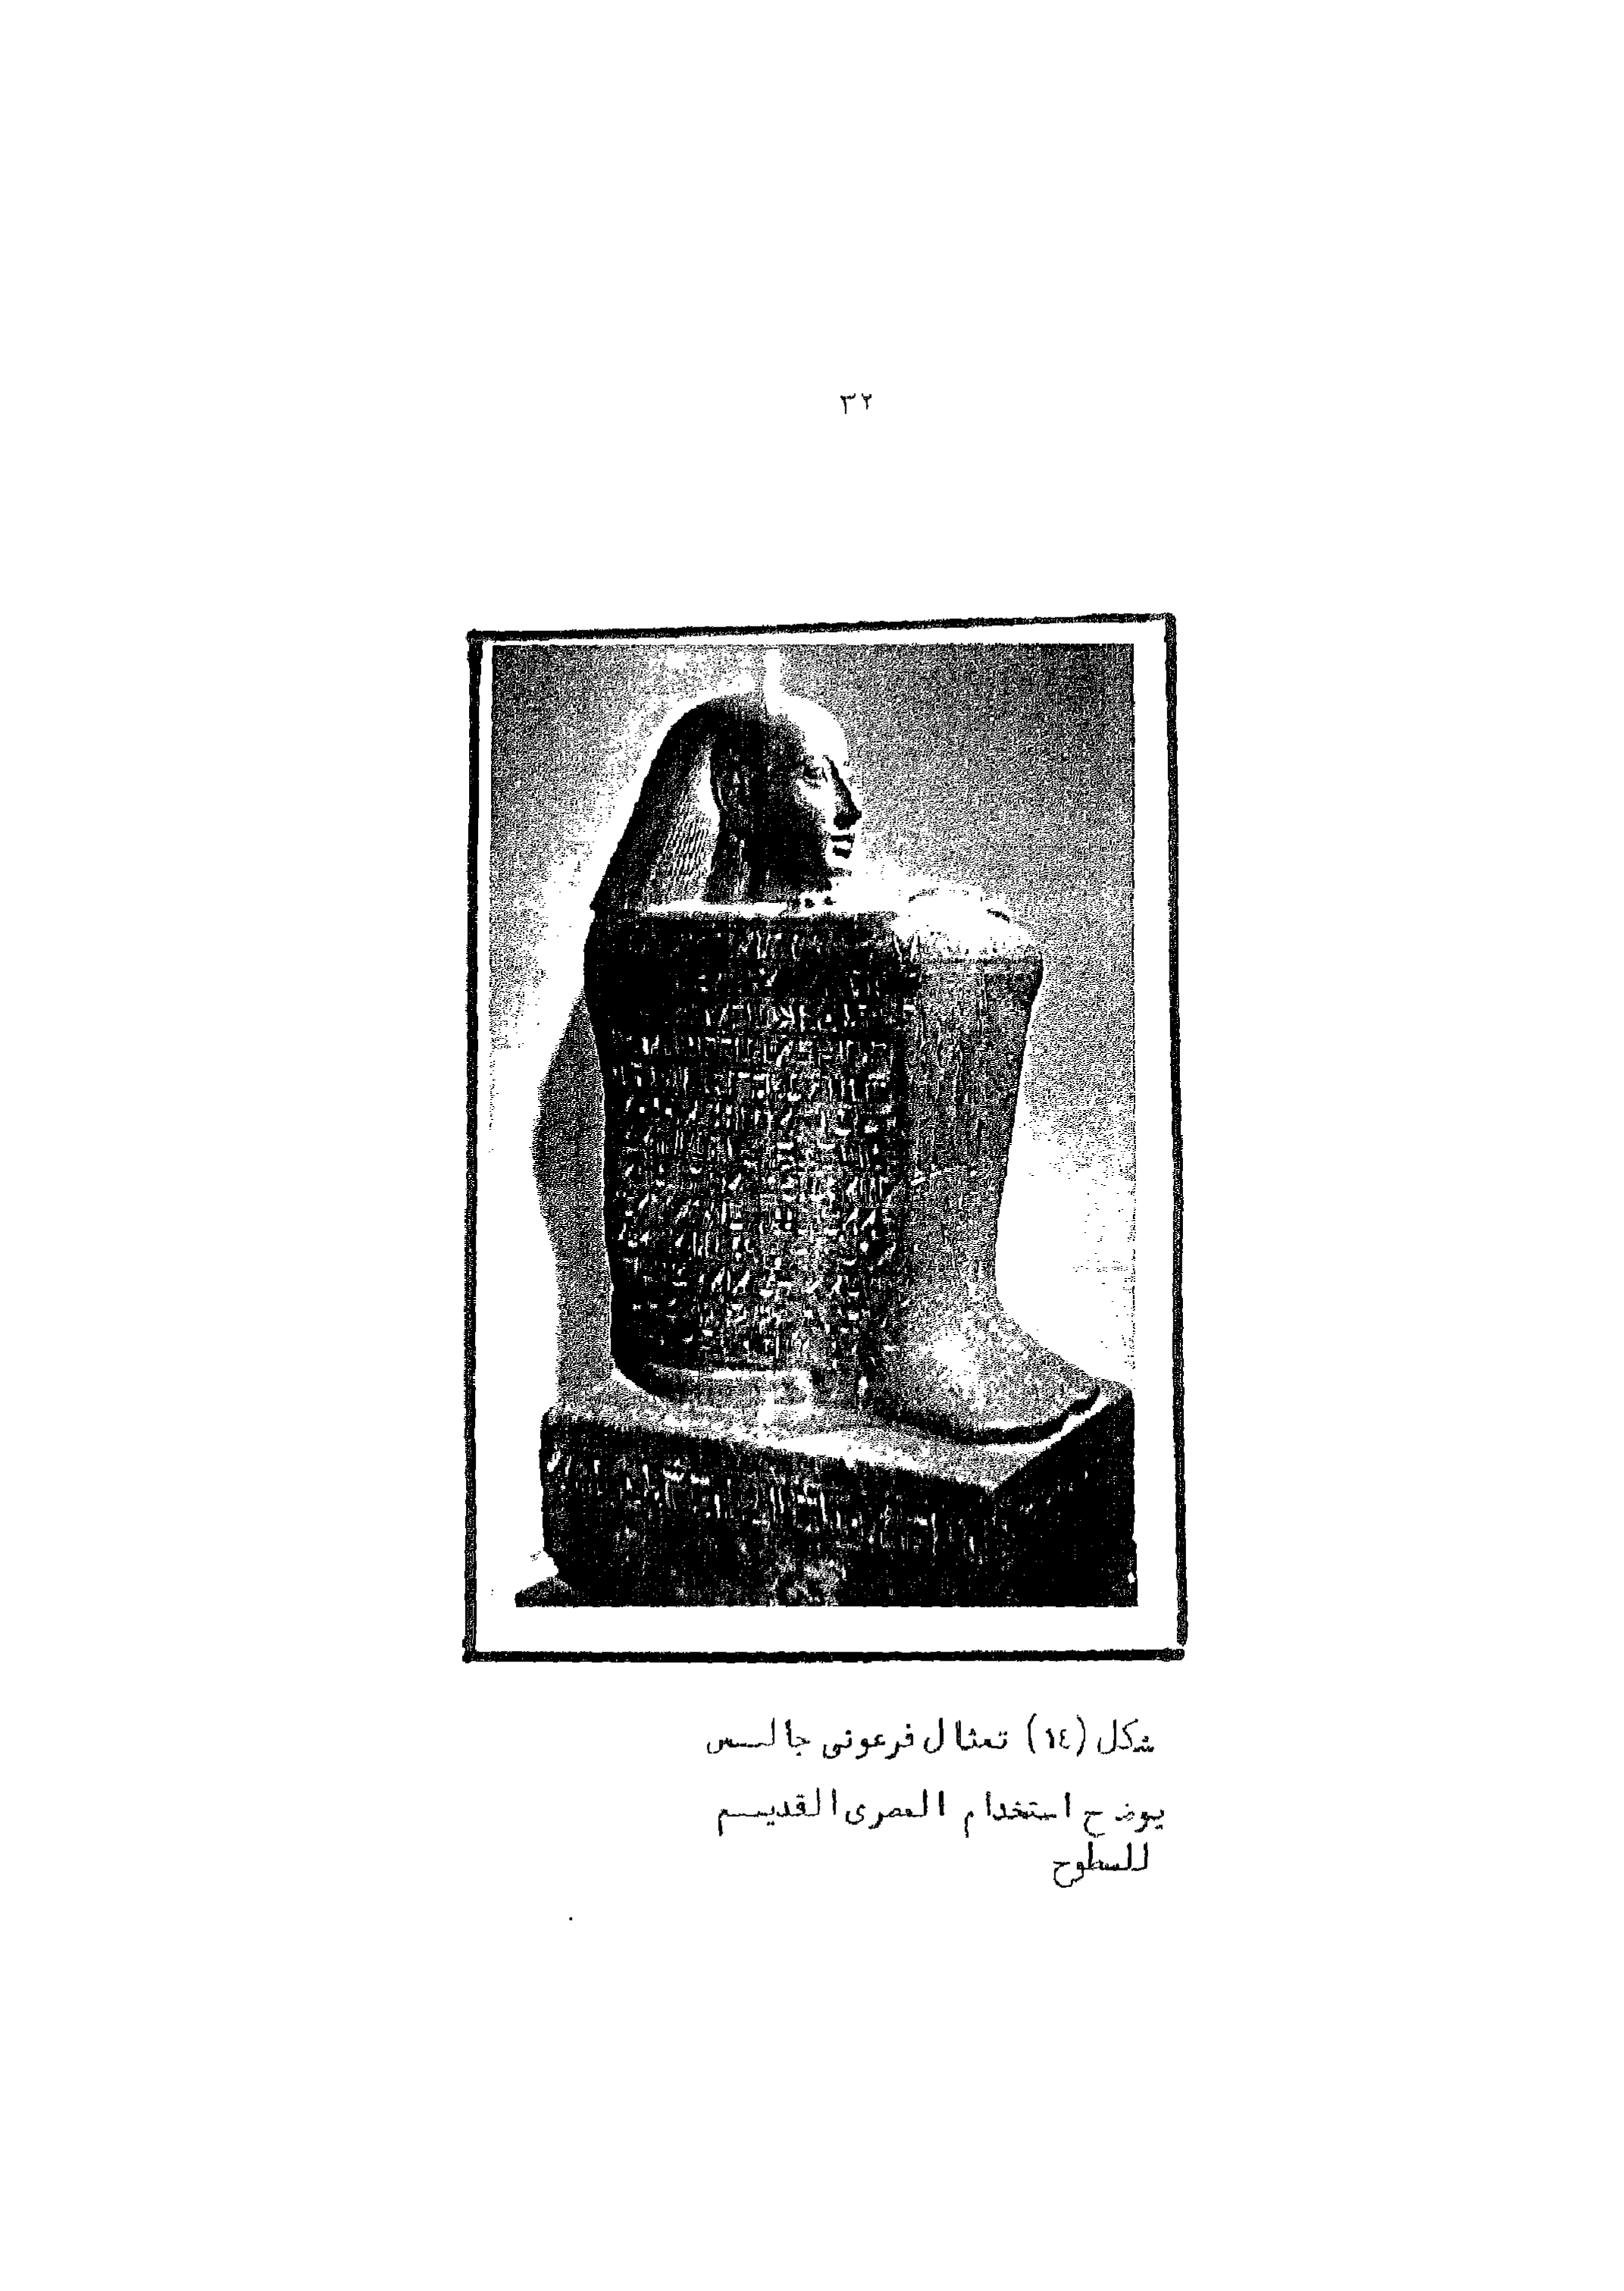 ٣٢
شكل (١٤) تمثال فرعونى جالس
يوضح استخدام المصرى القديم
للسطوح